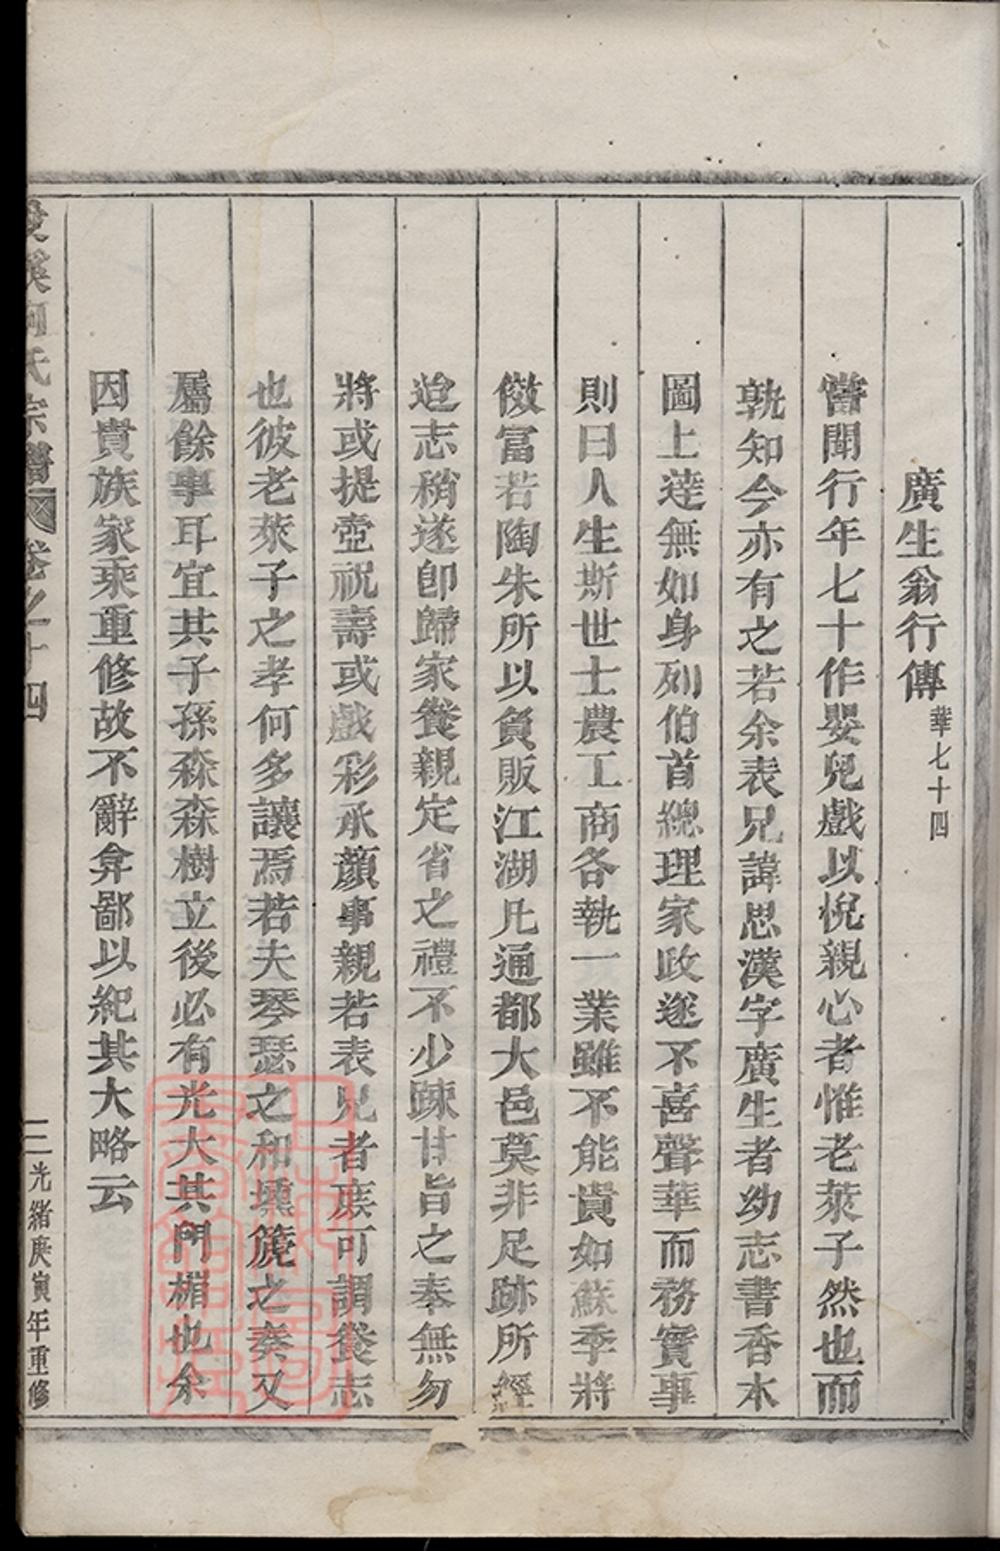 廣生翁行傳華七十四
嘗聞行年七十作嬰兒戲以悅親心者惟老萊子然也而
孰知今亦有之若余表兄諱思漢字廣生者幼志書香本
圖上達無如身列伯首總理家政遂不喜聲華而務實事
則曰人生斯世士農工商各執一業雖不能貴如蘇季將
傚富若陶朱所以負販江湖凡通都大邑莫非足跡所經
迨志稍遂卽歸家養親定省之禮不少踈甘旨之奉無匆
將或提壺祝壽或戲彩承顏事親若表兄者庶可謂養志
也彼老萊子之孝何多讓焉若夫琴瑟之和壎篪之奏又
屬餘事耳宜其子孫森森樹立後必有光大其門楣也余
因貴族家乘重修故不辭弇鄙以紀其大略云
溪何氏宗譜 卷之十四 三 光緒庚寅年重修